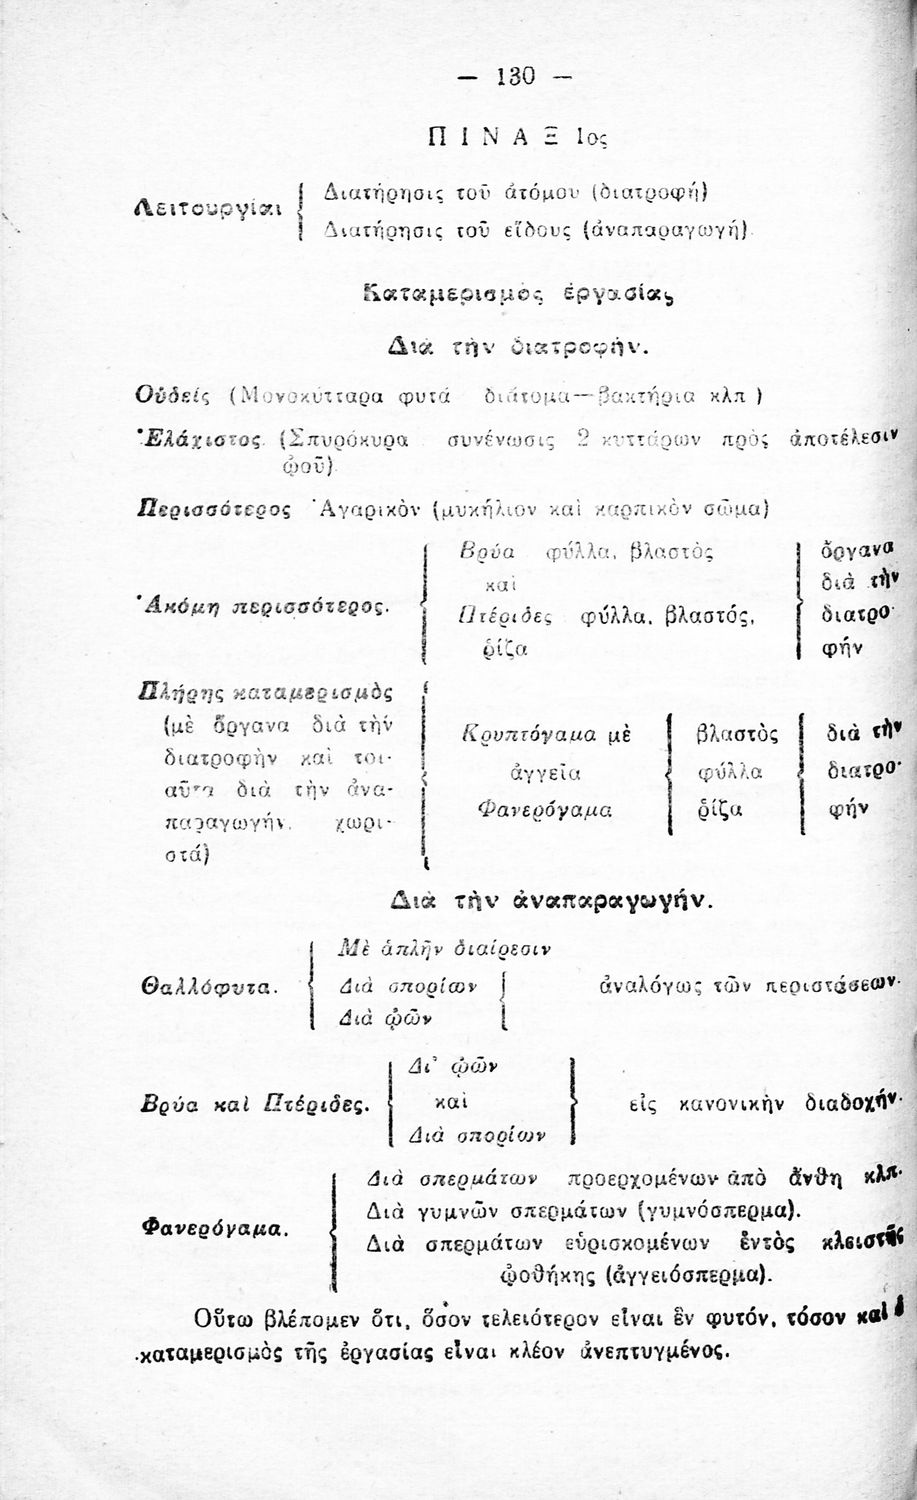 — 130 —
ΠΙΝΑΞ 1ος
Λειτουργίαι { Διατήρησις τοῦ ἀτόμου (διατροφή)
Διατήρησις τοῦ εἴδους (ἀναπαραγωγή)
Καταμερισμὸς ἐργασίας
Διὰ τὴν διατροφήν.
Οὐδείς (Μονοκύτταρα φυτά διάτομα—βακτήρια κλπ )
Ἐλάχιστος (Σπυρόκυρα συνένωσις 2 κυττάρων πρὸς ἀποτέλεσιν
ᾠοῦ)
Περισσότερος Ἀγαρικὸν (μυκήλιον καὶ καρπικὸν σῶμα)
Βρύα φύλλα, βλαστὸς ὄργανα
καὶ διὰ τὴν
Ἀκόμη περισσότερος. { Πτέριδες φύλλα, βλαστός, } διατρο-
ῥίζα φήν
Πλήρης καταμερισμὸς
(μὲ ὄργανα διὰ τὴν Κρυπτόγαμα μὲ βλαστὸς διὰ τὴν
διατροφὴν καὶ τοι- ἀγγεῖα { φύλλα { διατρο-
αῦτα διὰ τὴν ἀνα- Φανερόγαμα ῥίζα φήν
παραγωγήν, χωρι-
στά)
Διὰ τὴν ἀναπαραγωγήν.
Μὲ ἁπλῆν διαίρεσιν
Θαλλόφυτα. { Διὰ σπορίων ἀναλόγως τῶν περιστάσεων.
Διὰ ᾠῶν
Δι' ᾠῶν
Βρύα καὶ Πτέριδες. { καὶ } εἰς κανονικὴν διαδοχήν.
Διὰ σπορίων
Διὰ σπερμάτων προερχομένων ἀπὸ ἄνθη κλπ.
Διὰ γυμνῶν σπερμάτων (γυμνόσπερμα).
Φανερόγαμα. { Διὰ σπερμάτων εὑρισκομένων ἐντὸς κλειστῆς
ᾠοθήκης (ἀγγειόσπερμα).
Οὕτω βλέπομεν ὅτι, ὅσον τελειότερον εἶναι ἓν φυτόν, τόσον καὶ ὁ
καταμερισμὸς τῆς ἐργασίας εἶναι κλέον ἀνεπτυγμένος.